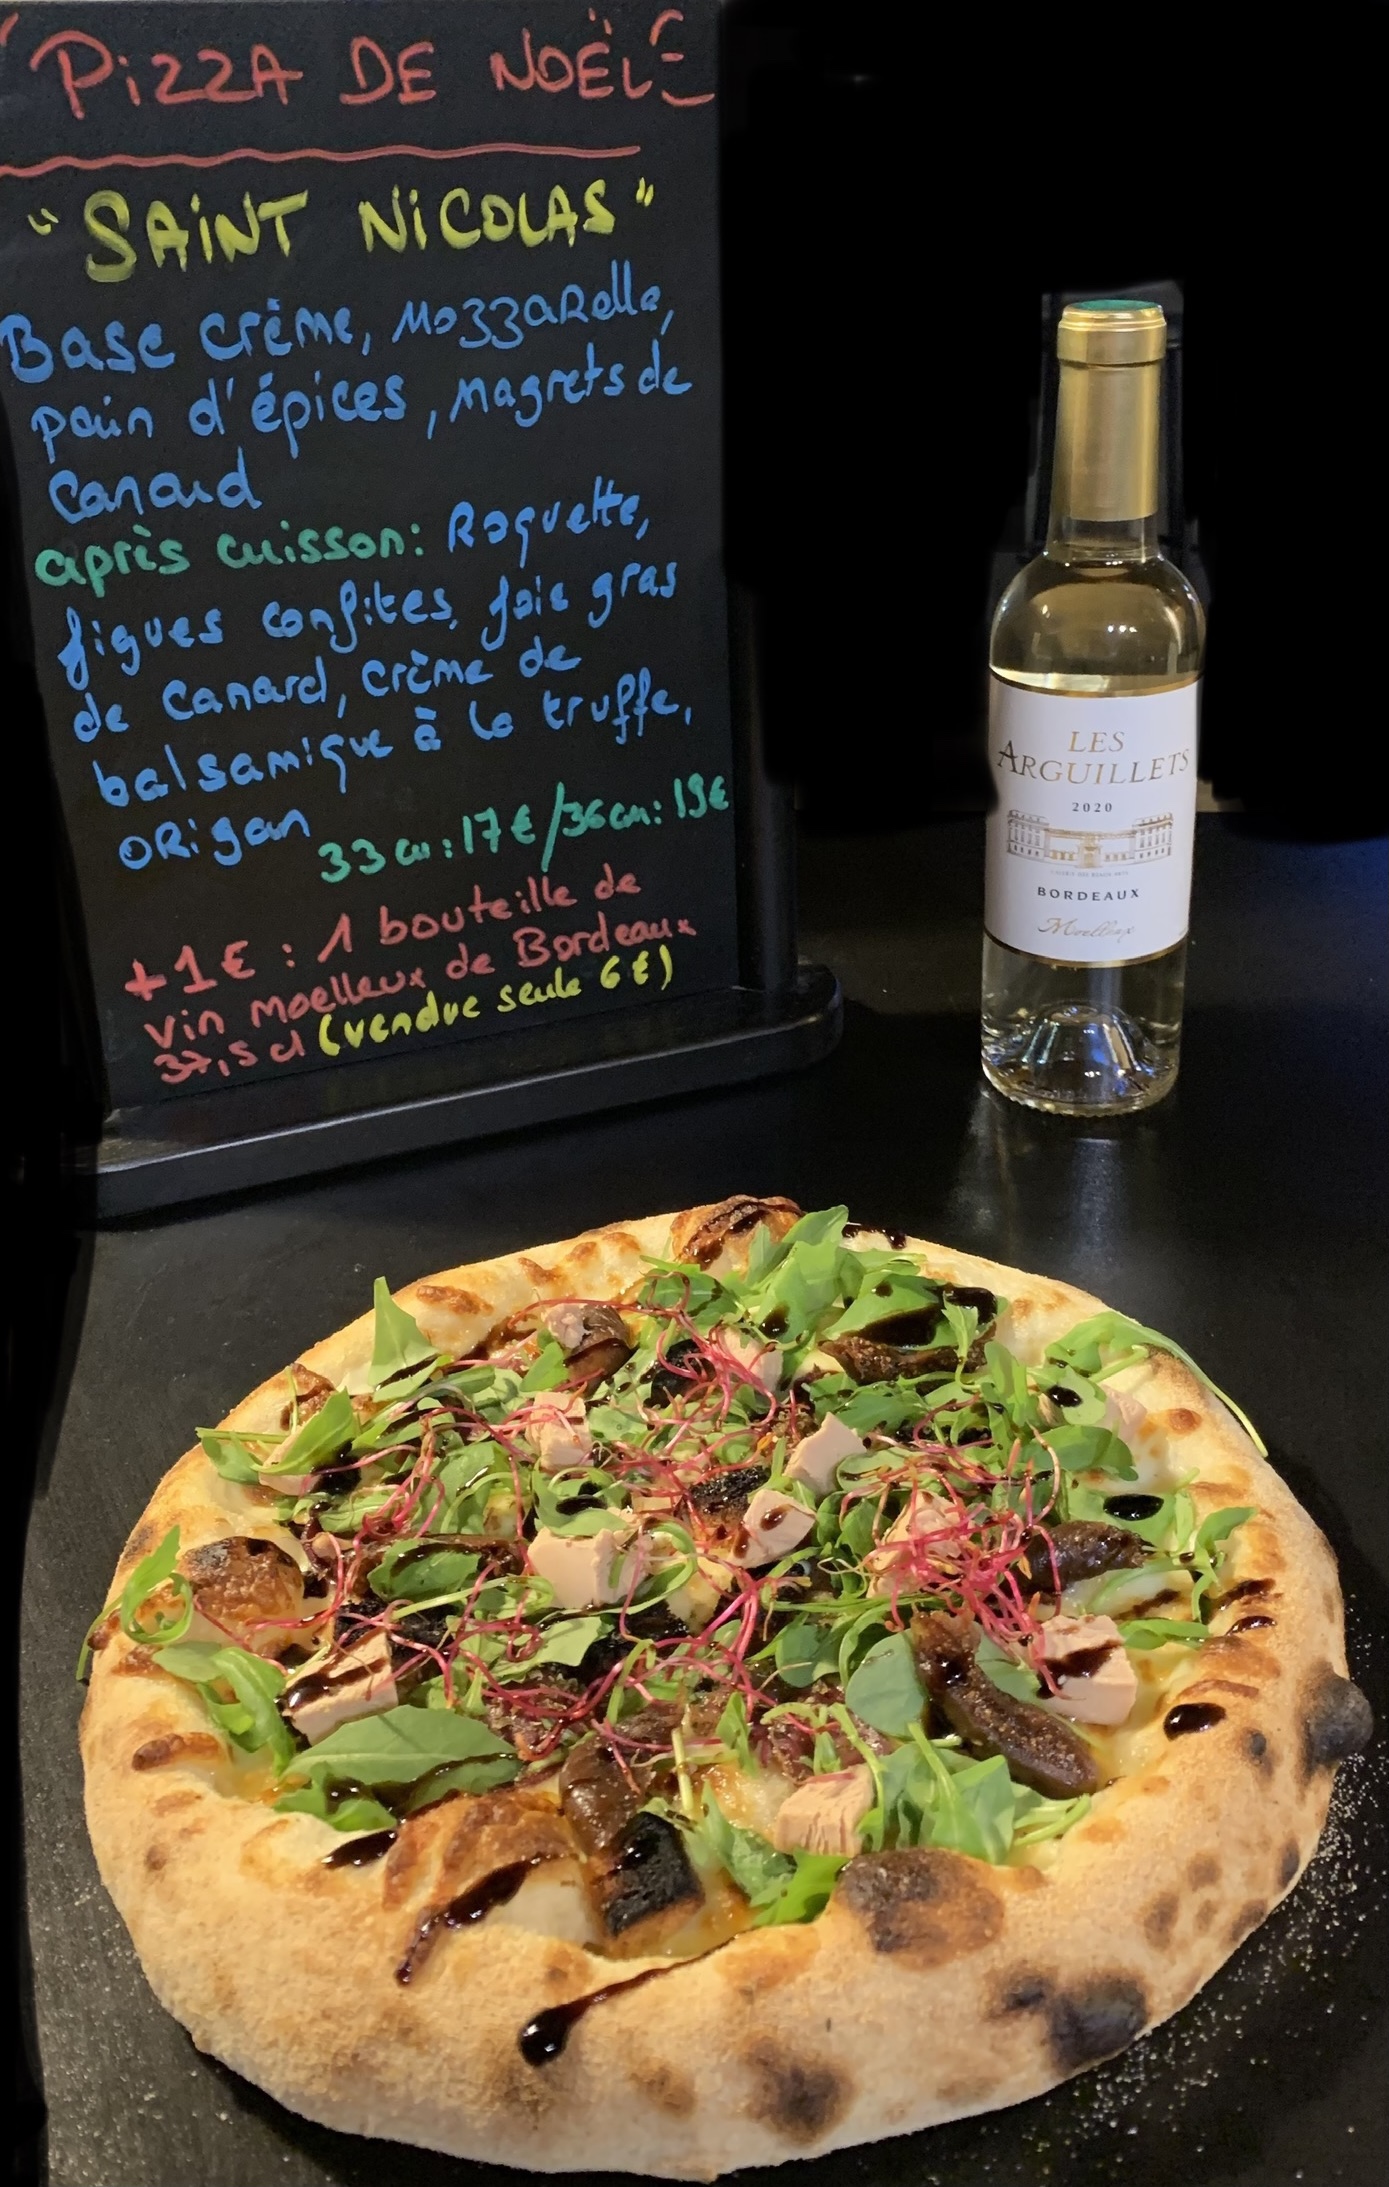 PIZZA DE NOËL
"SAINT NICOLAS"
Base crème, Mozzarella,
pain d'épices, Magrets de
Canard
après cuisson: Roquette,
figues confites, foie gras
de Canard, crème de
balsamique à la truffe,
origan
33cm: 17€/36cm: 19€
+1€ : 1 bouteille de
vin moelleux de Bordeaux
37,5 cl (vendue seule 6€)
LES
ARGUILLETS
2020
BORDEAUX
Moelleux